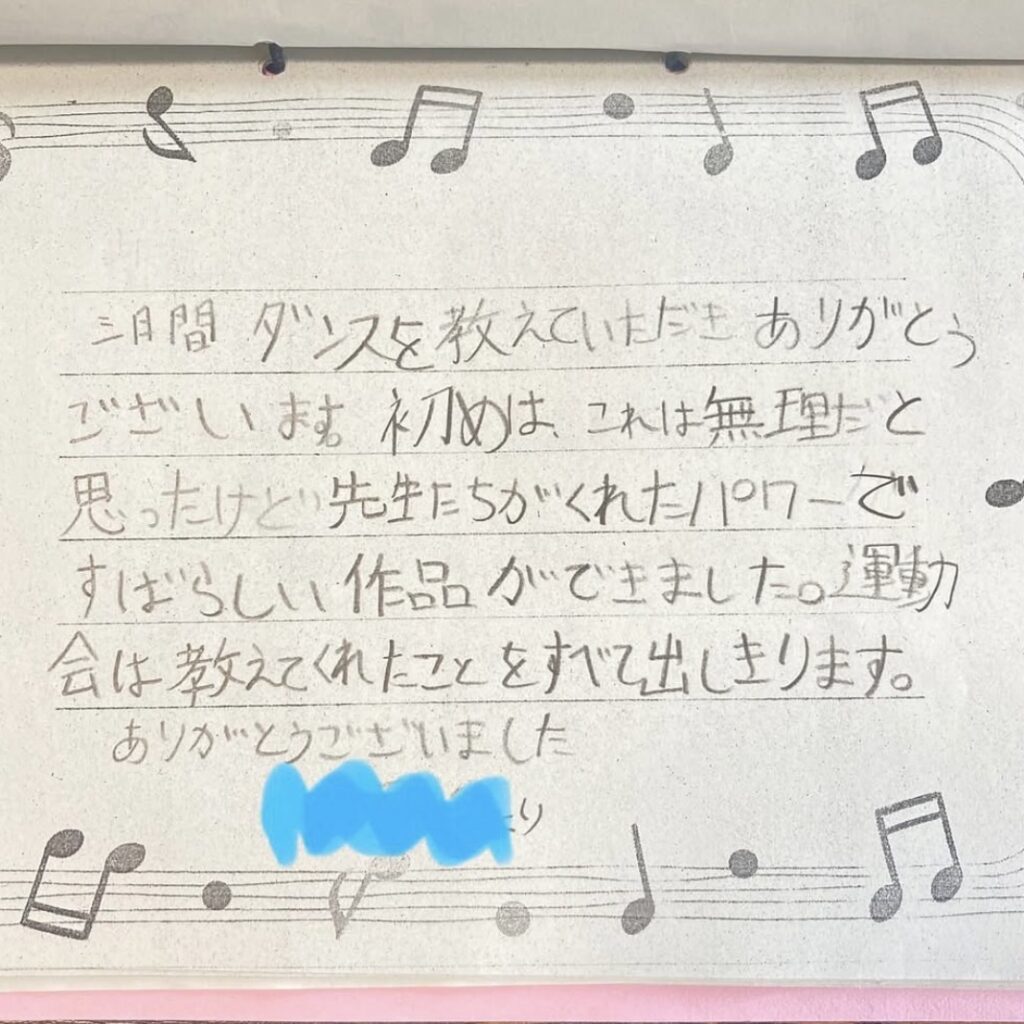 三日間 ダンスを教えていただき ありがとう
ございます。初めは、これは無理だと
思ったけど 先生たちがくれたパワーで
すばらしい作品ができました。運動
会は教えてくれたことをすべて出しきります。
ありがとうございました
より